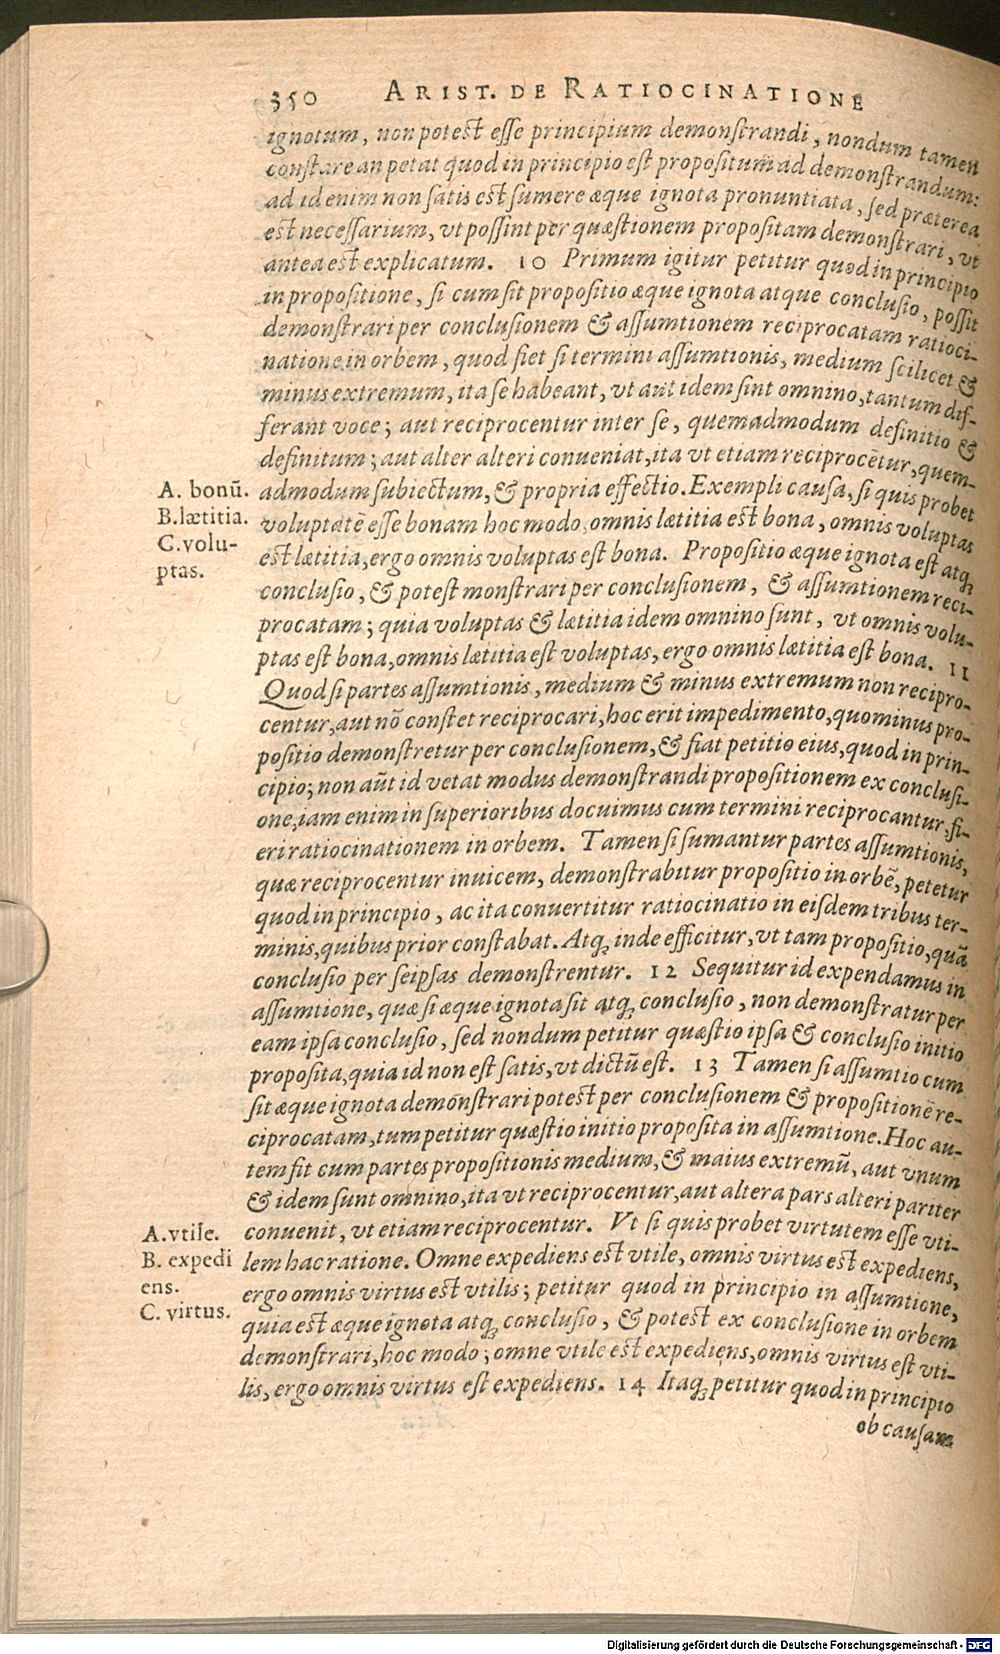 350 ARIST. DE RATIOCINATIONE
ignotum, non potest esse principium demonstrandi, nondum tamen
constare an petat quod in principio est propositum ad demonstrandum:
ad id enim non satis est sumere æque ignota pronuntiata, sed præterea
est necessarium, vt possint per quæstionem propositam demonstrari, vt
antea est explicatum. 10 Primum igitur petitur quod in principio
in propositione, si cum sit propositio æque ignota atque conclusio, possit
demonstrari per conclusionem & assumtionem reciprocatam ratioci-
natione in orbem, quod fiet si termini assumtionis, medium scilicet &
minus extremum, ita se habeant, vt aut idem sint omnino, tantum dif-
ferant voce; aut reciprocentur inter se, quemadmodum definitio &
definitum; aut alter alteri conueniat, ita vt etiam reciprocẽtur, quem-
A. bonũ.
B. lætitia.
C. volu-
ptas.
admodum subiectum, & propria effectio. Exempli causa, si quis probet
voluptatẽ esse bonam hoc modo, omnis lætitia est bona, omnis voluptas
est lætitia, ergo omnis voluptas est bona. Propositio æque ignota est atq;
conclusio, & potest monstrari per conclusionem, & assumtionem reci-
procatam; quia voluptas & lætitia idem omnino sunt, vt omnis volu-
ptas est bona, omnis lætitia est voluptas, ergo omnis lætitia est bona. 11
Quod si partes assumtionis, medium & minus extremum non recipro-
centur, aut nõ constet reciprocari, hoc erit impedimento, quominus pro-
positio demonstretur per conclusionem, & fiat petitio eius, quod in prin-
cipio; non aũt id vetat modus demonstrandi propositionem ex conclusi-
one, iam enim in superioribus docuimus cum termini reciprocantur, fi-
eri ratiocinationem in orbem. Tamen si sumantur partes assumtionis,
quæ reciprocentur inuicem, demonstrabitur propositio in orbẽ, petetur
quod in principio, ac ita conuertitur ratiocinatio in eisdem tribus ter-
minis, quibus prior constabat. Atq; inde efficitur, vt tam propositio, quã
conclusio per seipsas demonstrentur. 12 Sequitur id expendamus in
assumtione, quæ si æque ignota sit atq; conclusio, non demonstratur per
eam ipsa conclusio, sed nondum petitur quæstio ipsa & conclusio initio
proposita, quia id non est satis, vt dictũ est. 13 Tamen si assumtio cum
sit æque ignota demonstrari potest per conclusionem & propositionẽ re-
ciprocatam, tum petitur quæstio initio proposita in assumtione. Hoc au-
tem fit cum partes propositionis medium, & maius extremũ, aut vnum
& idem sunt omnino, ita vt reciprocentur, aut altera pars alteri pariter
A. vtile.
B. expedi
ens.
C. virtus.
conuenit, vt etiam reciprocentur. Vt si quis probet virtutem esse vti-
lem hac ratione. Omne expediens est vtile, omnis virtus est expediens,
ergo omnis virtus est vtilis; petitur quod in principio in assumtione,
quia est æque ignota atq; conclusio, & potest ex conclusione in orbem
demonstrari, hoc modo; omne vtile est expediens, omnis virtus est vti-
lis, ergo omnis virtus est expediens. 14 Itaq; petitur quod in principio
ob causam
Digitalisierung gefördert durch die Deutsche Forschungsgemeinschaft - DFG